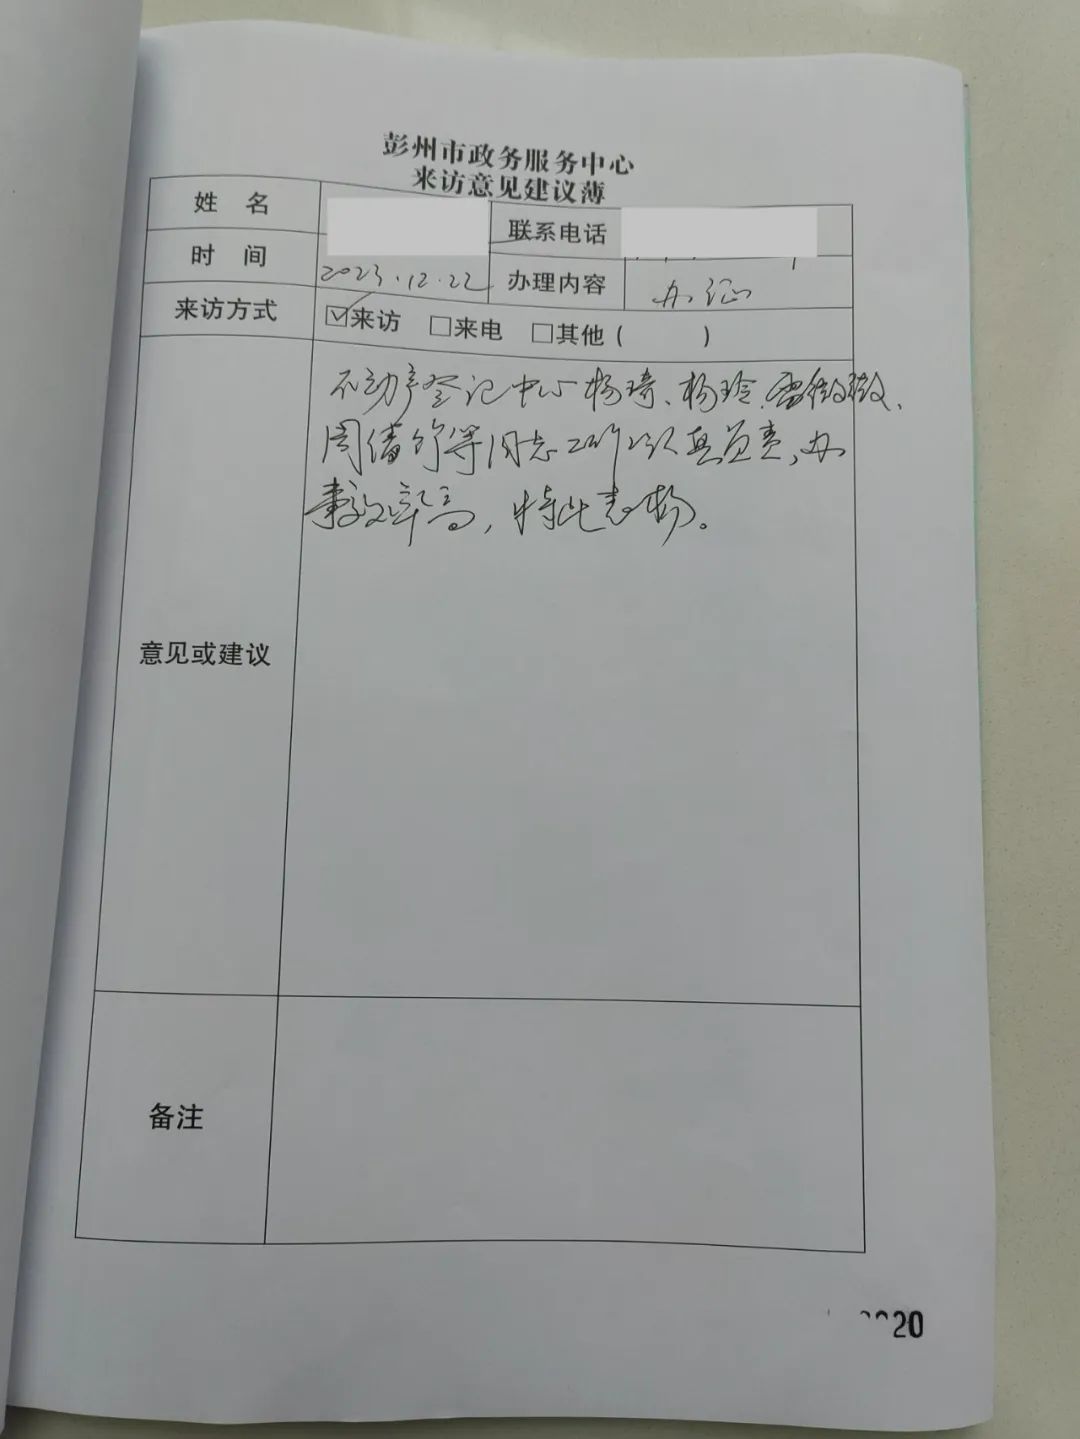 彭州市政务服务中心
来访意见建议薄
姓 名
联系电话
时 间 2023.12.22 办理内容 办证
来访方式 ☑来访 □来电 □其他（ ）
意见或建议
不动产登记中心杨琦、杨玲、雷微微、
周倩竹等同志工作认真负责、办
事效率高，特此表扬。
备注
20